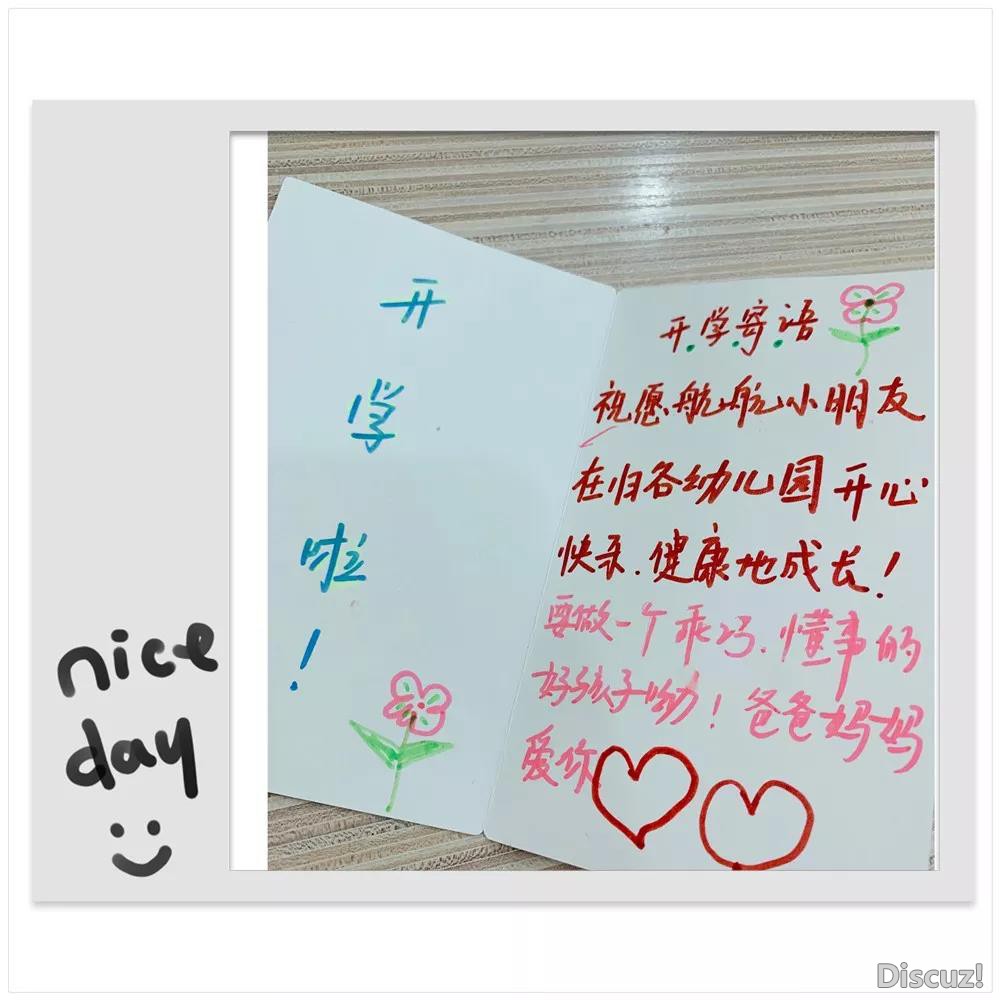 开
学
啦
!
开学寄语
祝愿航航小朋友
在归谷幼儿园开心
快乐.健康地成长!
要做一个乖巧.懂事的
好孩子呦!爸爸妈妈
爱你
nice
day
Discuz!